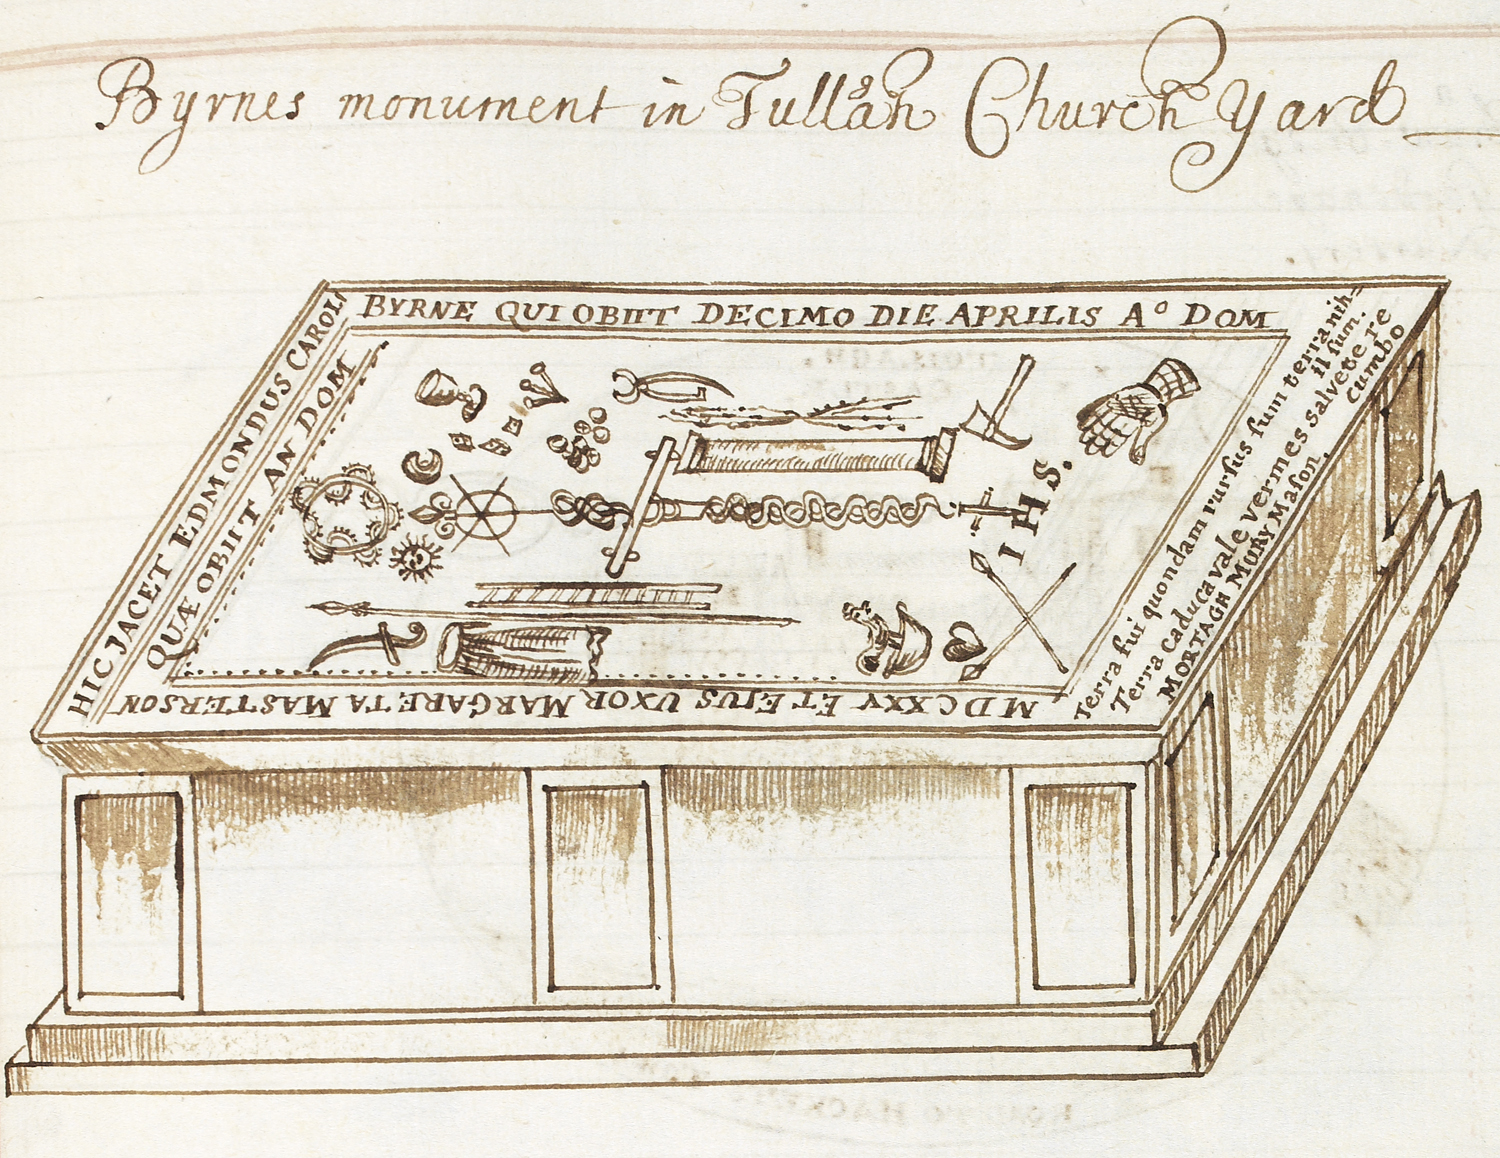 Byrnes monument in Tulloah Church Yard
HIC JACET EDMONDUS CAROLI
BYRNE QUI OBIIT DECIMO DIE APRILIS Aº DOM
MDCXXV ET EJUS UXOR MARGARETA MASTERSON
QUÆ OBIIT AN DOM
IHS.
Terra fui quondam rursus sum terra nih=
il sum.
Terra caduca vale vermes salvete re
cumbo
MORTAGH MURY Mason.